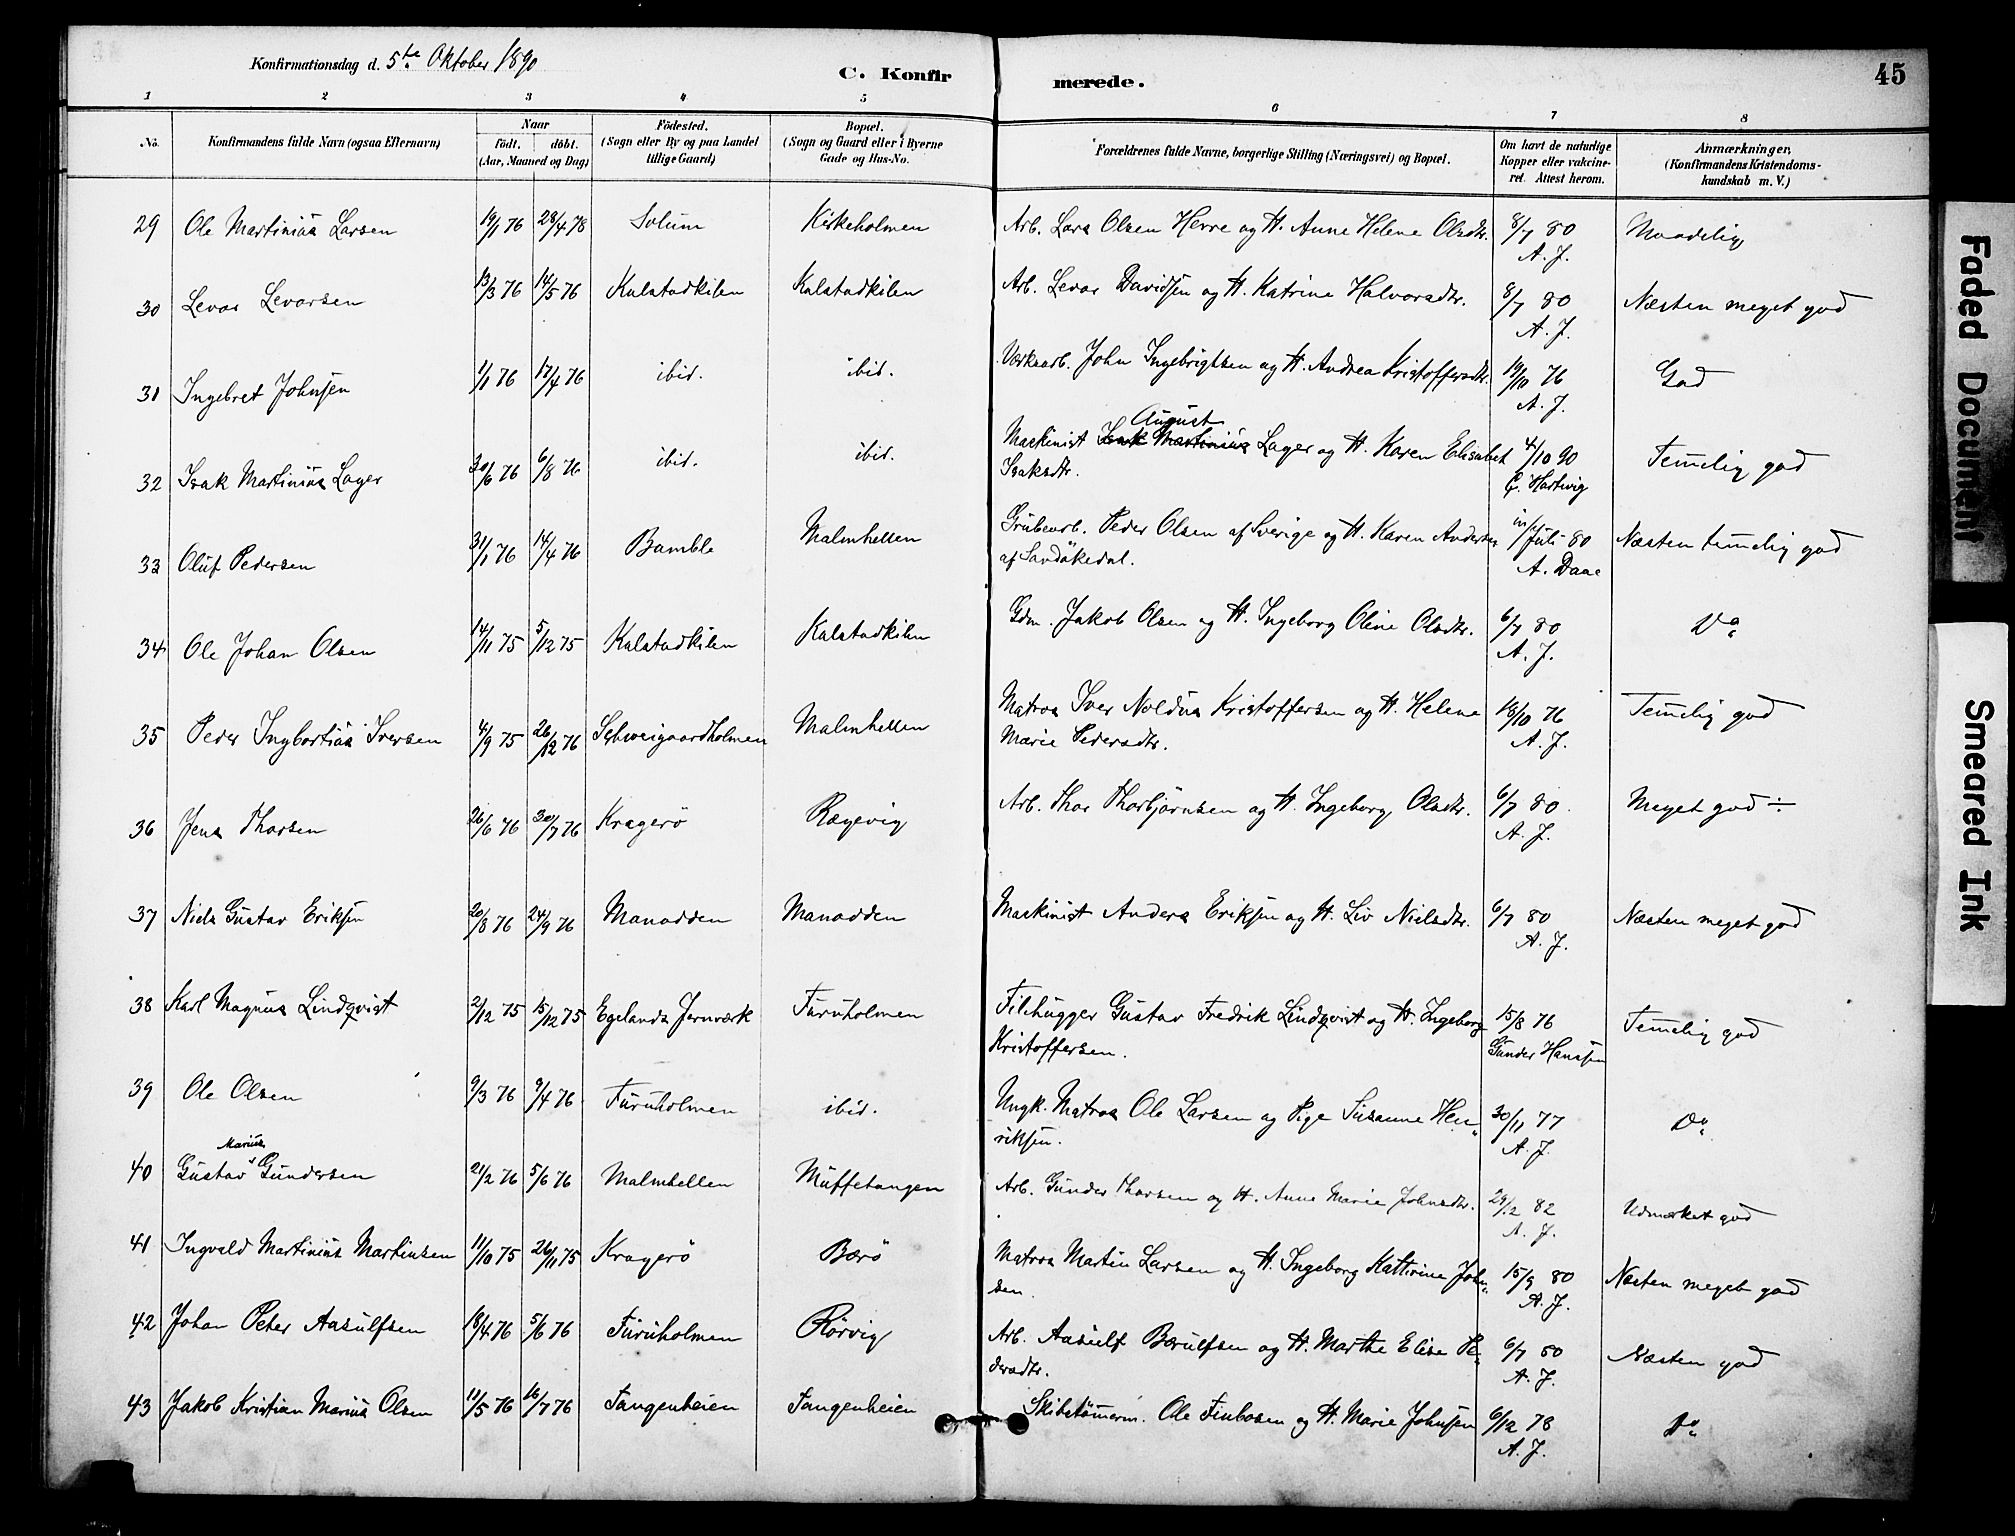 Konfirmationsdag d. 5te Oktober 1890
C. Konfirmerede.
45
1 2 3 4 5 6 7 8
No. Konfirmandens fulde Navn (ogsaa Efternavn) Naar født. døbt. (Aar, Maaned og Dag) Fødested. (Sogn eller By og paa Landet tillige Gaard) Bopæl. (Sogn og Gaard eller i Byerne Gade og Hus-No. Forældrenes fulde Navne, borgerlige Stilling (Næringsvei) og Bopæl. Om havt de naturlige Kopper eller vakcineret. Attest herom. Anmærkninger, (Konfirmandens Kristendomskundskab m. V.)
29 Ole Martinius Larsen 19/1 76 28/4 78 Solum Kirkeholmen Arb. Lars Olsen Herre og H. Anne Helene Olsdtr. 8/7 80 Maadelig
A. J.
30 Levor Levorsen 13/3 76 14/5 76 Kalstadkilen Kalstadkilen Arb. Levor Davidsen og H. Katrine Halvorsdtr. 8/7 80 Næsten meget god
A. J.
31 Ingebret Johnsen 1/1 76 17/4 76 ibid. ibid. Værksarb. John Ingebrigtsen og H. Andrea Kristoffersdtr. 19/10 76 God
A. J.
August
32 Isak Martinius Lager 30/6 76 6/8 76 ibid. ibid. Maskinist Isak Martinius Lager og H. Karen Elisabet 4/10 90 Temelig god
Isaksdtr. G. Hartvig
33 Oluf Pedersen 31/1 76 14/4 76 Bamble Malmhellen Grubearb. Peder Olsen af Sverige og H. Karen Andersen Juli 80 Næsten temelig god
af Sandökedal. A. Daae
34 Ole Johan Olsen 14/11 75 5/12 75 Kalstadkilen Kalstadkilen Gdm. Jakob Olsen og H. Ingeborg Oline Olsdtr. 6/7 80 Do
A. J.
35 Peder Ingbortius Iversen 4/9 75 26/12 76 Schweigaardholmen Malmhellen Matros Iver Noldus Kristoffersen og H. Helene 18/10 76 Temelig god
Marie Pedersdtr. A. J.
36 Jens Thorsen 26/6 76 30/7 76 Kragerö Rægevig Arb. Thor Thorbjörnsen og H. Ingeborg Olsdtr. 6/7 80 Meget god ÷
A. J.
37 Niels Gustav Eriksen 20/8 76 24/9 76 Manodden Manodden Maskinist Anders Eriksen og H. Liv Nielsdtr. 6/7 80 Næsten meget god
A. J.
38 Karl Magnus Lindqvist 2/12 75 15/12 75 Egelands Jernværk Furuholmen Filehugger Gustav Fredrik Lindqvist og H. Ingeborg 15/8 76 Temelig god
Kristoffersen. Gunder Hansen
39 Ole Olsen 9/3 76 9/4 76 Furuholmen ibid. Ungk. Matros Ole Larsen og Pige Susanne Hen- 30/11 77 Do
riksen. A. J.
Marius
40 Gustav Gundersen 21/2 76 5/6 76 Malmhellen Muffetangen Arb. Gunder Thorsen og H. Anne Marie Johnsdtr. 29/12 82 Udmærket god
A. J.
41 Ingvald Martinius Martinsen 11/10 75 26/11 75 Kragerö Bærö Matros Martin Larsen og H. Ingeborg Kattirine John- 15/9 80 Næsten meget god
sen. A. J.
42 Johan Peter Aasulfsen 18/4 76 5/6 76 Furuholmen Rörvig Arb. Aasulf Bærulfsen og H. Marthe Elise Pe- 6/7 80 Næsten god
dersdtr. A. J.
43 Jakob Kristian Marius Olsen 11/5 76 16/7 76 Tangenheien Tangenheien Skibstömerm. Ole Finbosen og H. Marie Johnsen 6/12 78 Do
A. J.
Faded Document
Smeared Ink